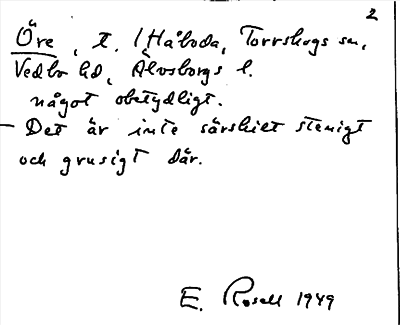 2
Öre, t. 1 Håboda, Torrskogs sn,
Vedbo hd, Älvsborgs l.
något obetydligt.
- Det är inte särskilt stenigt
och grusigt där.
E. Rosell 1949